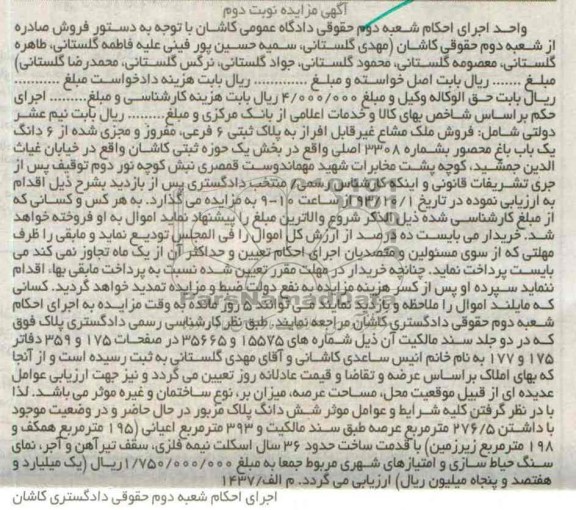 آگهی مزایده نوبت دوم
واحد اجرای احکام شعبه دوم حقوقی دادگاه عمومی کاشان با توجه به دستور فروش صادره
از شعبه دوم حقوقی کاشان (مهدی گلستانی، سمیه حسین پور فینی علیه فاطمه گلستانی، طاهره
گلستانی، معصومه گلستانی، محمود گلستانی، جواد گلستانی، نرگس گلستانی، محمدرضا گلستانی)
مبلغ ........ ریال بابت اصل خواسته و مبلغ ............ ریال بابت هزینه دادخواست مبلغ ............
ریال بابت حق الوکاله وکیل و مبلغ ۴/۰۰۰/۰۰۰ ریال بابت هزینه کارشناسی و مبلغ......... اجرای
حکم بر اساس شاخص بهای کالا و خدمات اعلامی از بانک مرکزی و مبلغ......... ریال بابت نیم عشر
دولتی شامل: فروش ملک مشاع غیرقابل افراز به پلاک ثبتی ۶ فرعی، مفروز و مجزی شده از ۶ دانگ
یک باب باغ محصور بشماره ۳۳۰۸ اصلی واقع در بخش یک حوزه ثبتی کاشان واقع در خیابان غیاث
الدین جمشید، کوچه پشت مخابرات شهید مهماندوست قمصری نبش کوچه نور دوم توقیف پس از
جری تشریفات قانونی و اینکه کارشناس رسمی/ منتخب دادگستری پس از بازدید بشرح ذیل اقدام
به ارزیابی نموده در تاریخ ۹۳/۱۲/۰۱ از ساعت ۱۰-۹ به مزایده می گذارد. به هر کس و کسانی که
از مبلغ کارشناسی شده ذیل الذکر شروع والاترین مبلغ را پیشنهاد نماید اموال به او فروخته خواهد
شد. خریدار می بایست ده درصد از ارزش کل اموال را فی المجلس تودیع نماید و مابقی را ظرف
مهلتی که از سوی مسئولین و متصدیان اجرای احکام تعیین و حداکثر آن از یک ماه تجاوز نمی کند می
بایست پرداخت نماید. چنانچه خریدار در مهلت مقرر تعیین شده نسبت به پرداخت مابقی بهاء اقدام
ننماید سپرده او پس از کسر هزینه مزایده به نفع دولت ضبط و مزایده تمدید خواهد گردید. کسانی
که مایلند اموال را ملاحظه و بازدید نمایند می توانند ۵ روز مانده به وقت مزایده به اجرای احکام
شعبه دوم حقوقی دادگستری کاشان مراجعه نمایند. طبق نظر کارشناسی رسمی دادگستری پلاک فوق
که در دو جلد سند مالکیت آن ذیل شماره های ۱۵۵۷۵ و ۳۵۶۶۵ در صفحات ۱۷۵ و ۳۵۹ دفاتر
۱۷۵ و ۱۷۷ به نام خانم انیس ساعدی کاشانی و آقای مهدی گلستانی به ثبت رسیده است و از آنجا
که بهای املاک براساس عرضه و تقاضا و قیمت عادلانه روز تعیین می گردد و نیز جهت ارزیابی عوامل
عدیده ای از قبیل موقعیت محل، مساحت عرصه، میزان بر، نوع ساختمان و غیره موثر می باشد. لذا
با در نظر گرفتن کلیه شرایط و عوامل موثر شش دانگ پلاک مزبور در حال حاضر و در وضعیت موجود
با داشتن ۲۷۶/۵ مترمربع عرصه طبق سند مالکیت و ۳۹۳ مترمربع اعیانی (۱۹۵ مترمربع همکف و
۱۹۸ مترمربع زیرزمین) با قدمت ساخت حدود ۳۶ سال اسکلت نیمه فلزی، سقف تیر آهن و آجر، نمای
سنگ حیاط سازی و امتیازهای شهری مربوط جمعا به مبلغ ۱/۷۵۰/۰۰۰/۰۰۰ ریال (یک میلیارد و
هفتصد و پنجاه میلیون ریال) ارزیابی می گردد. م الف/۱۴۳۷
اجرای احکام شعبه دوم حقوقی دادگستری کاشان